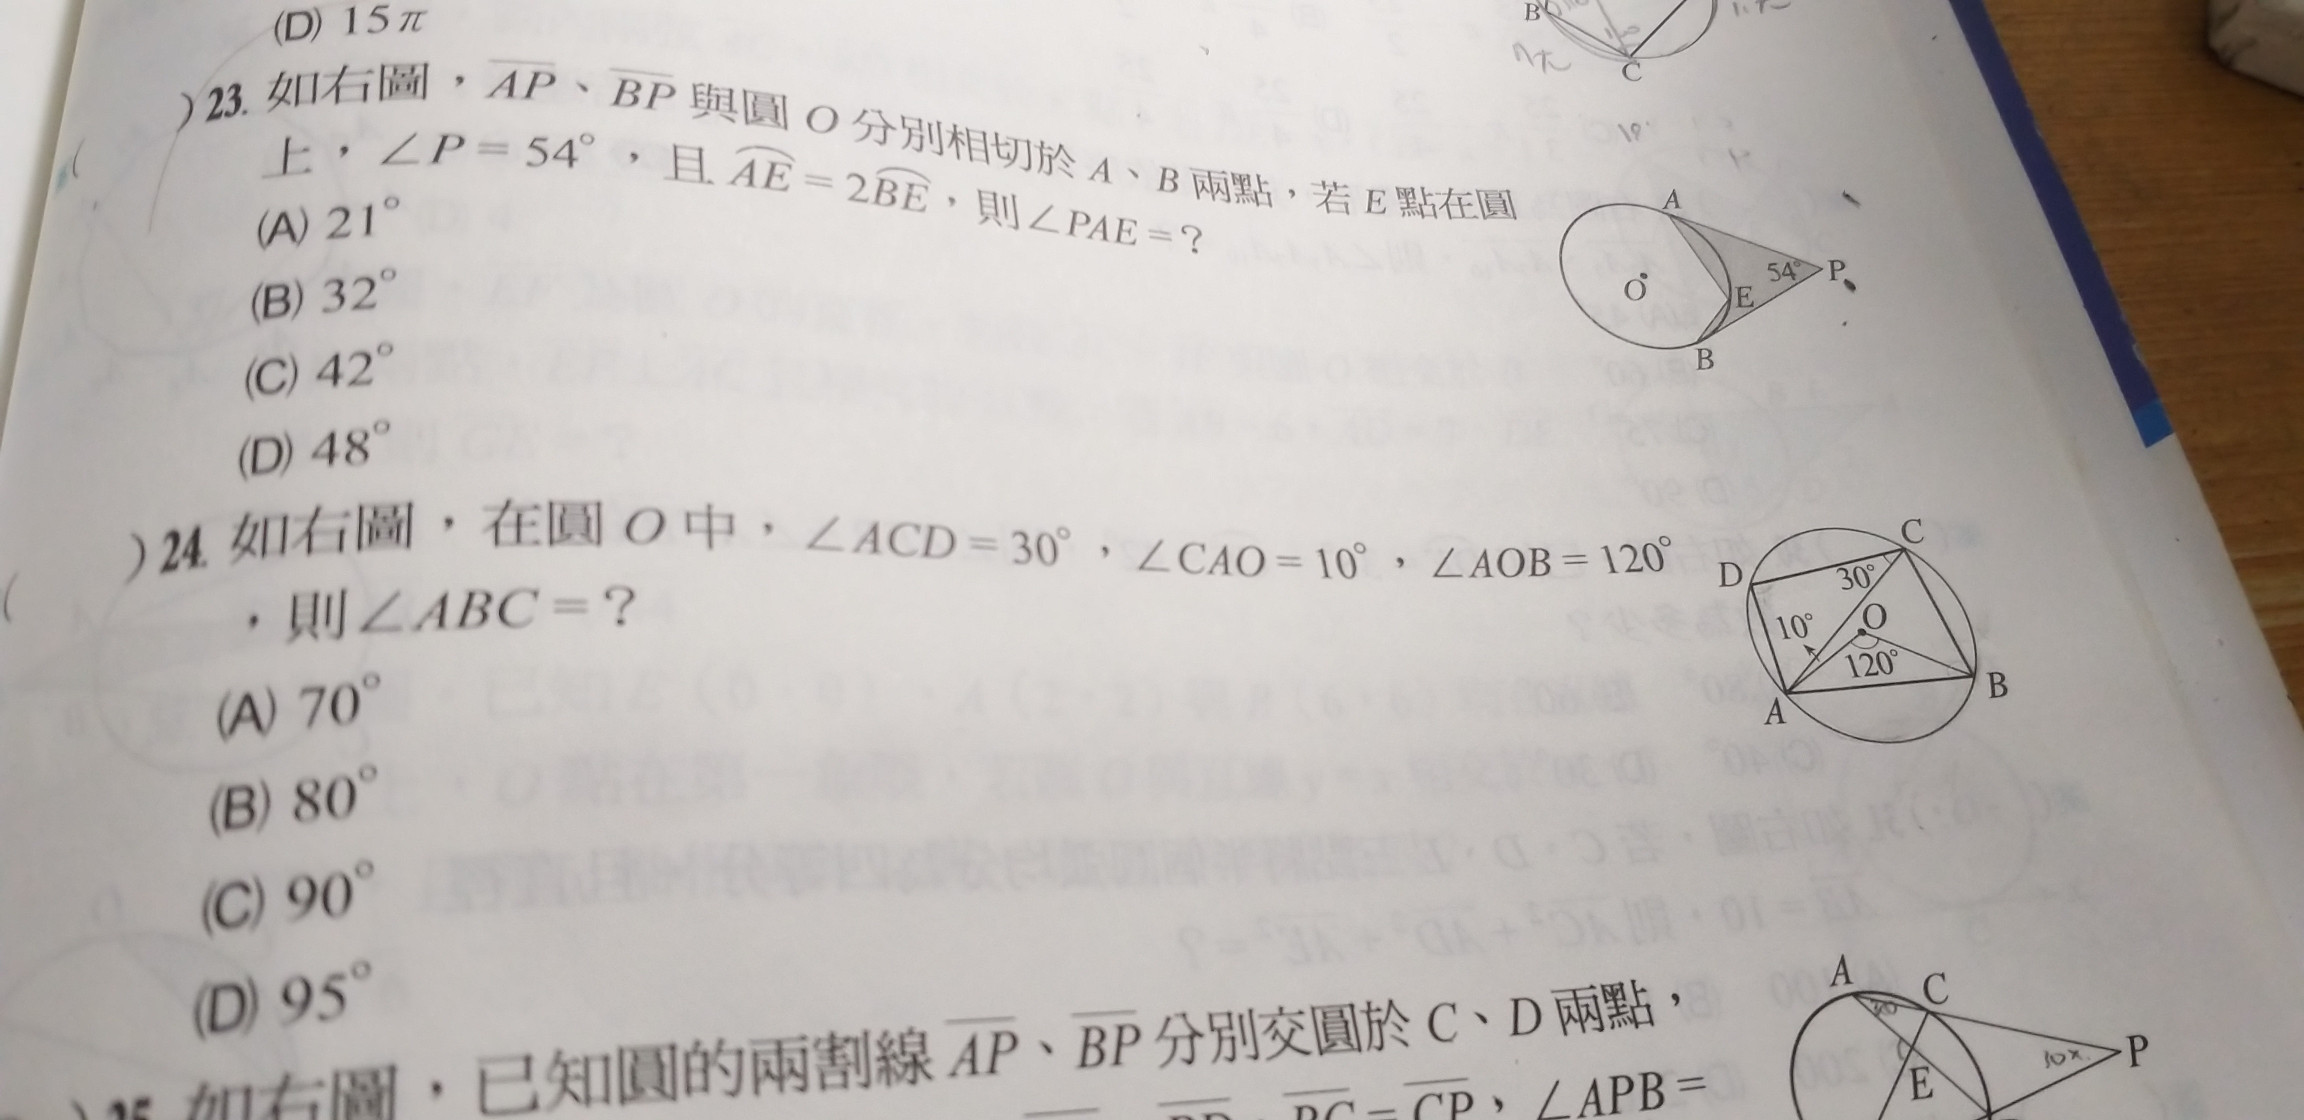 (D) 15π
B
C
( ) 23. 如右圖，AP、BP 與圓 O 分別相切於 A、B 兩點，若 E 點在圓
上，∠P = 54°，且 AE = 2BE，則∠PAE = ?
(A) 21°
(B) 32°
(C) 42°
(D) 48°
A
O
54°
P
E
B
( ) 24. 如右圖，在圓 O 中，∠ACD = 30°，∠CAO = 10°，∠AOB = 120°
，則∠ABC = ?
(A) 70°
(B) 80°
(C) 90°
(D) 95°
C
D
30°
10°
O
120°
A
B
) 25. 如右圖，已知圓的兩割線 AP、BP 分別交圓於 C、D 兩點，
BC = CP，∠APB =
A
C
10x
P
E